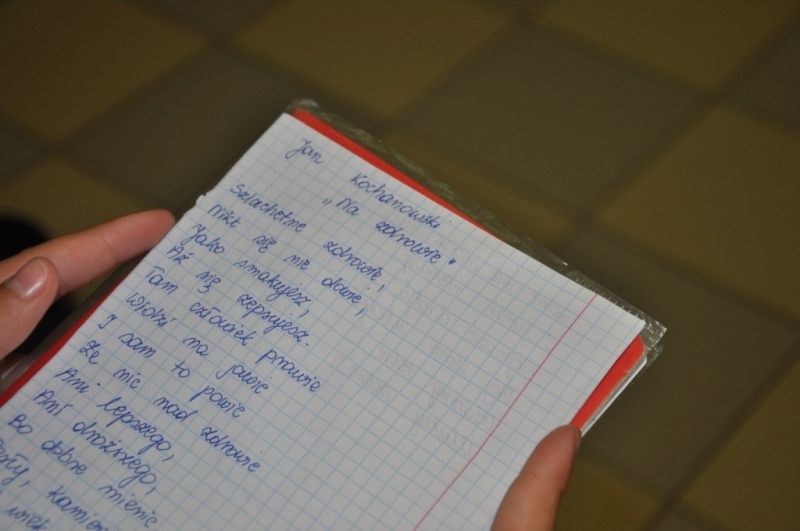 Jan Kochanowski
"Na zdrowie"
Szlachetne zdrowie,
Nikt się nie dowie,
Jako smakujesz,
Aż się zepsujesz.
Tam człowiek prawie
Widzi na jawie
I sam to powie
Że nic nad zdrowie
Ani lepszego,
Ani droższego,
Bo dobre mienie
Perły, kamien
wiek